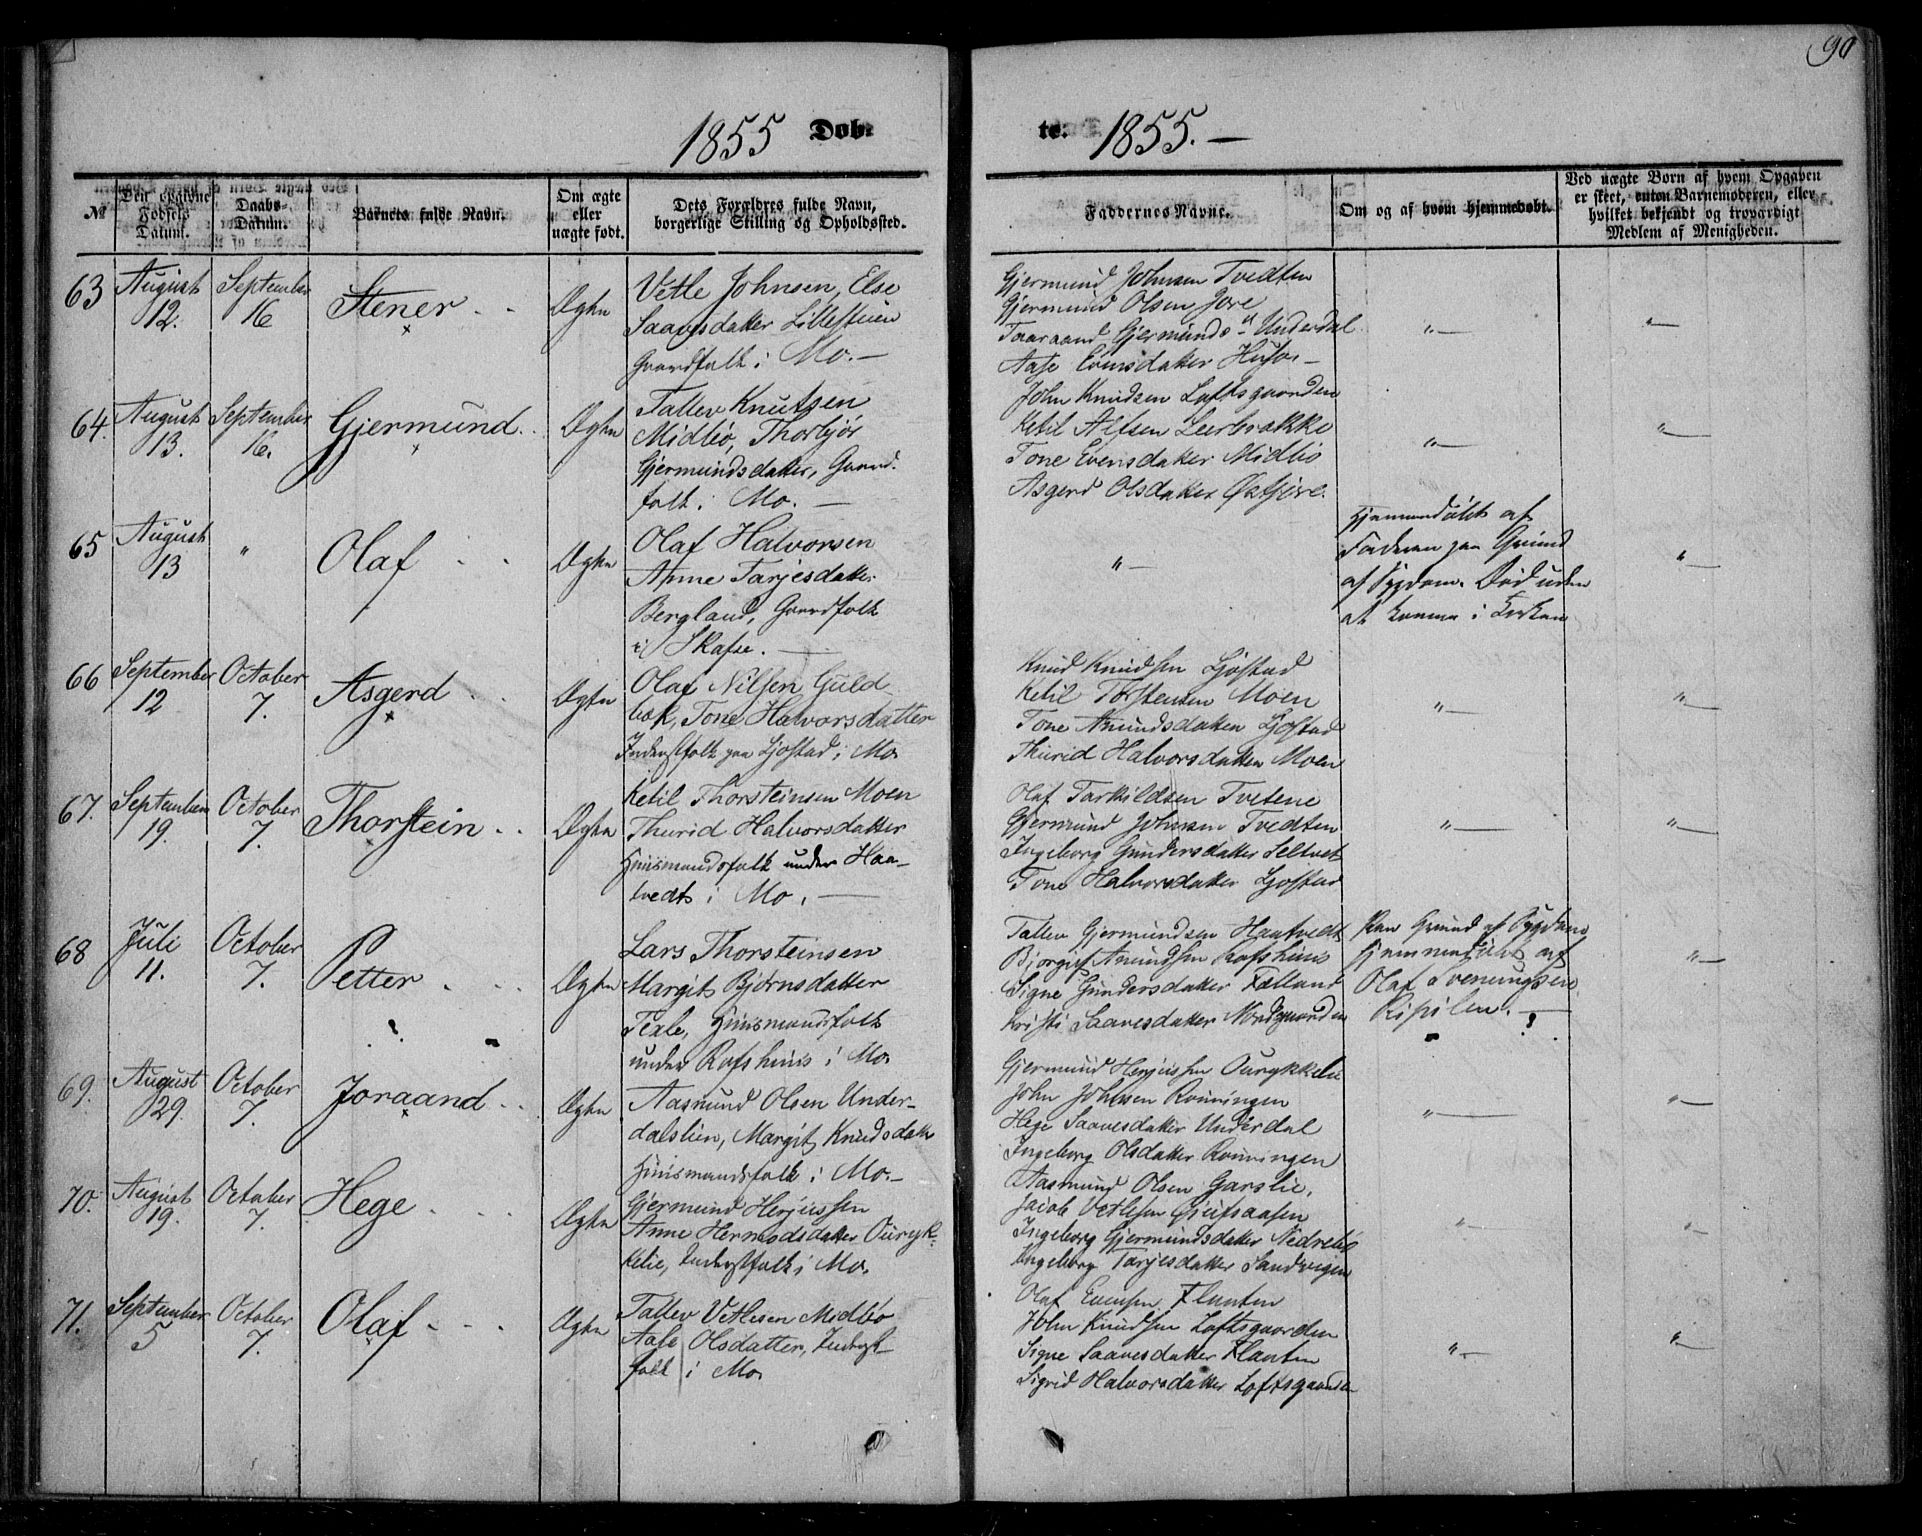 90
1855 Dob-
te. 1855. —
№
Den opgivne Fødsels Datum.
Daabs-Datum.
Barnets fulde Navn.
Om ægte eller uægte født.
Dets Forældres fulde Navn, borgerlige Stilling og Opholdssted.
Faddernes Navne.
Om og af hvem hjemmedøbt.
Ved uægte Børn af hvem Opgaven er skeet, enten Barnemoderen, eller hvilket bekjendt og troværdigt Medlem af Menigheden.
63 August 12. September 16 Stener Ægte
Vetle Johnsen, Else
Saavesdatter Lillestuen
Gaardfolk i Mo. —
Gjermund Johnsen Tvedten
Gjermund Olsen Jore
Taaraand Gjermunds Underdal
Aase Evensdatter
64. August 13. September 16. Gjermund Ægte
Tallev Knutsen
Midbö, Thorbjör
Gjermundsdatter, Gaard-
folk i Mo. —
John Knudsen Loftsgaarden
Ketil Alfsen Leerbrække
Tone Evensdatter Midbö
Asgerd Olsdatter
65 August 13 " Olaf Ægte
Olaf Halvorsen
Anne Tarjesdatter
Bergland, Gaardfolk
i Skafse. —
" —
Hjemmedöbt af
Faderen paa Grund
af Sygdom. Död uden
at komme i Kirken
66 September 12 October 7. Asgerd Ægte
Olaf Nilsen Guld-
bæk, Tone Halvorsdatter
Inderstfolk paa Ljostad i Mo
Knud Knudsen Ljostad
Ketil Torstensen Moen
Tone Amundsdatter Ljostad
Thurid Halvorsdatter Moen
67. September 19. October 7. Thorstein Ægte
Ketil Thorsteinsen Moen
Thurid Halvorsdatter
Huusmandsfolk under Haa-
tvedt i Mo. —
Olaf Tarkildsen Tvetene
Gjermund Johnsen Tvedten
Ingeborg Gundersdatter
Tone Halvorsdatter Ljostad
68 Juli 11. October 7. Petter Ægte
Lars Thorsteinsen
Margit Björnsdatter
Huusmandsfolk
under Rofshuus i Mo.
Tallev Gjermundsen Haatvedt
Bjorgulf Amundsen Rofshuus
Signe Gundersdatter Fælland
Kristi Saavesdatter Nordgaarden
Paa Grund af Sygdom
hjemmedöbt af
Olaf Sveinungsen
69. August 29. October 7. Joraand Ægte
Aasmund Olsen Under-
dalslien, Margit Knudsdatter
Huusmandsfolk i Mo. —
Gjermund Herjussen Ourykkelie
John Johnsen Rönningen
Hege Saavesdatter Underdal
Ingeborg Olsdatter Rönningen
70. August 19. October 7. Hege Ægte
Gjermund Herjussen
Anne Hermodsdatter Ouryk-
kelie, Inderstfolk i Mo.
Aasmund Olsen Garslie,
Jacob Vetlesen
Ingeborg Gjermundsdatter Nedrebö
Ingeborg Tarjesdatter Sandvigen
71. September 5 October 7. Olaf Ægte
Tallev Vetlesen Midbö
Aase Olsdatter, Inderst-
folk i Mo.
Olaf Evensen Flaaten
John Knudsen Loftsgaarden
Signe Saavesdatter Flaaten
Sigrid Halvorsdatter Loftsgaarden